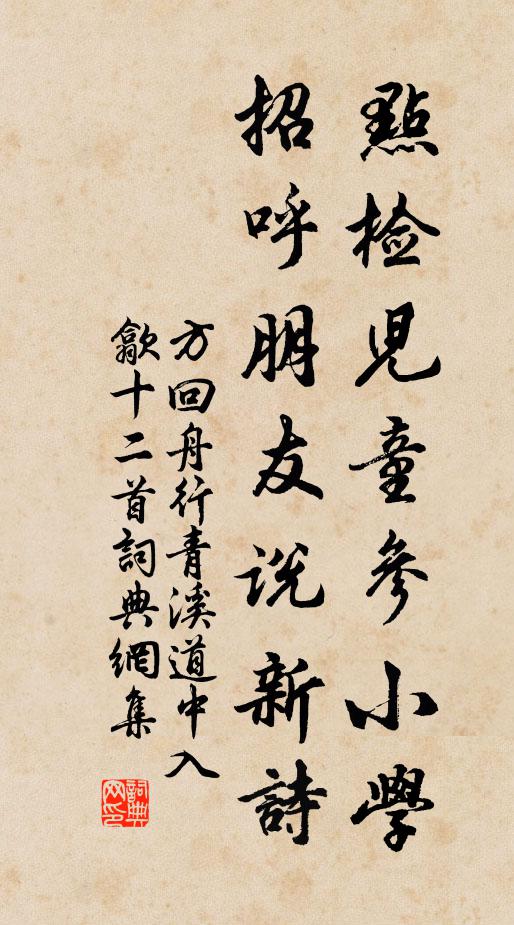 點檢児童參小學
招呼朋友説新詩
方回舟行青溪道中入
歙十二首詞典網集
詞典
网印